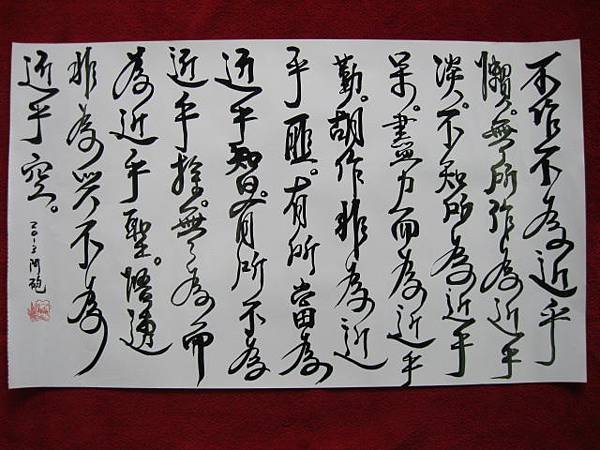 不作不為近乎
懶。無所作為近乎
淡。不知所為近乎
呆。盡力而為近乎
勤。胡作非為近
乎匪。有所當為
近乎智。有所不為
近乎捨。無為而
為近乎聖。悟透
非為與不為
近乎空。